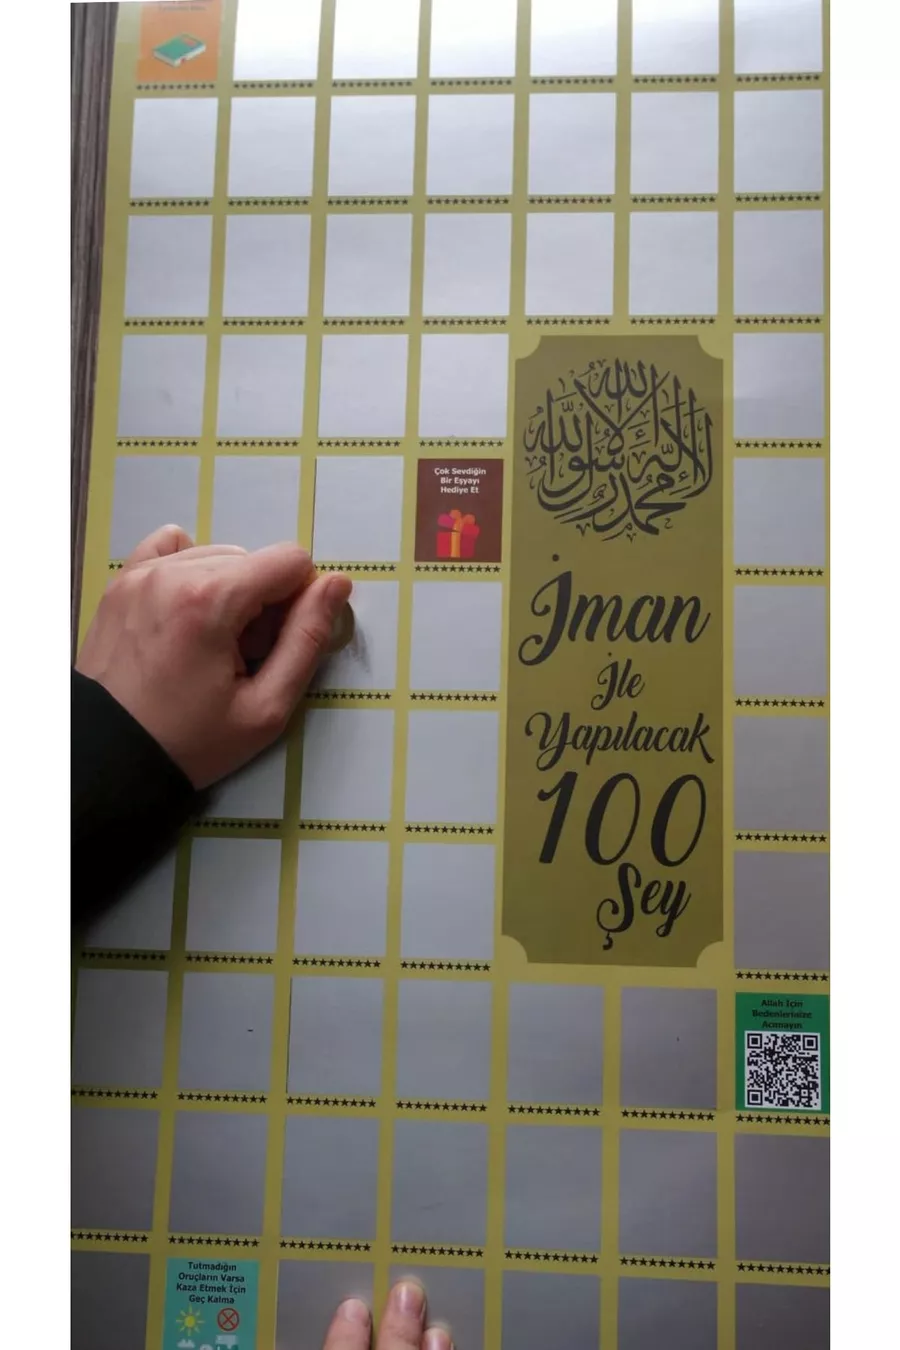 Çok Sevdiğin
Bir Eşyayı
Hediye Et
لا إله إلا الله محمد رسول الله
İman
İle
Yapılacak
100
Şey
Allah İçin
Bedenlerinize
Acımayın
Tutmadığın
Oruçların Varsa
Kaza Etmek İçin
Geç Kalma